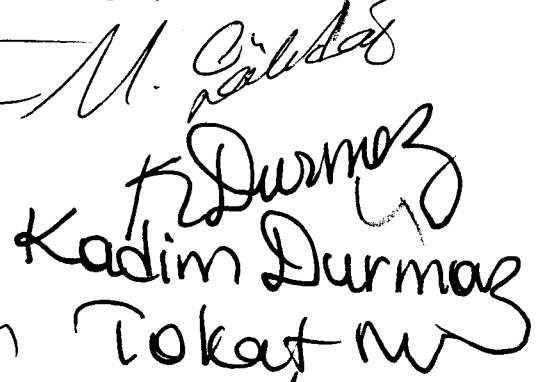 M.
K Durmaz
Kadim Durmaz
Tokat